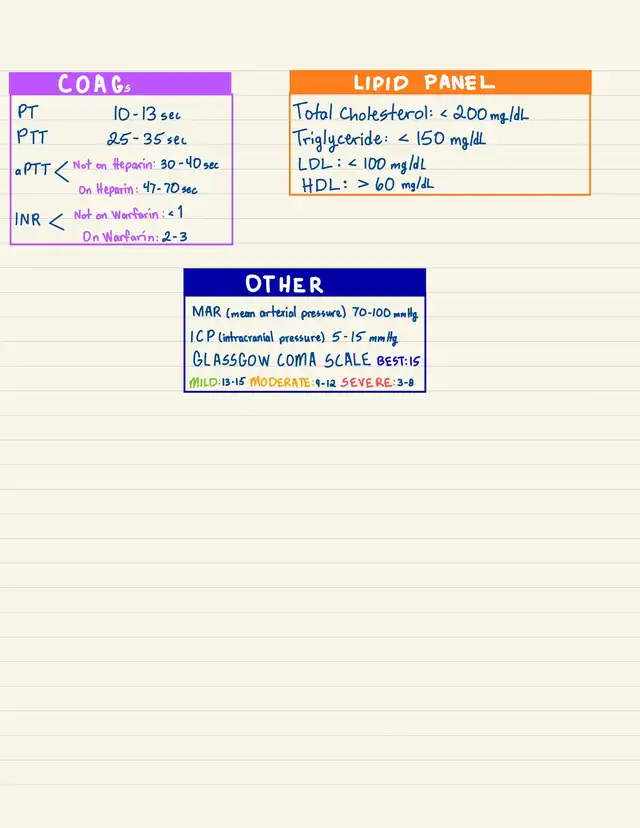 COAGs
PT 10-13 sec
PTT 25-35 sec
aPTT < Not on Heparin: 30-40 sec
On Heparin: 47-70 sec
INR < Not on Warfarin: <1
On Warfarin: 2-3
LIPID PANEL
Total Cholesterol: < 200 mg/dL
Triglyceride: < 150 mg/dL
LDL: < 100 mg/dL
HDL: > 60 mg/dL
OTHER
MAR (mean arterial pressure) 70-100 mmHg
ICP (intracranial pressure) 5-15 mmHg
GLASSGOW COMA SCALE BEST:15
MILD:13-15 MODERATE:9-12 SEVERE:3-8